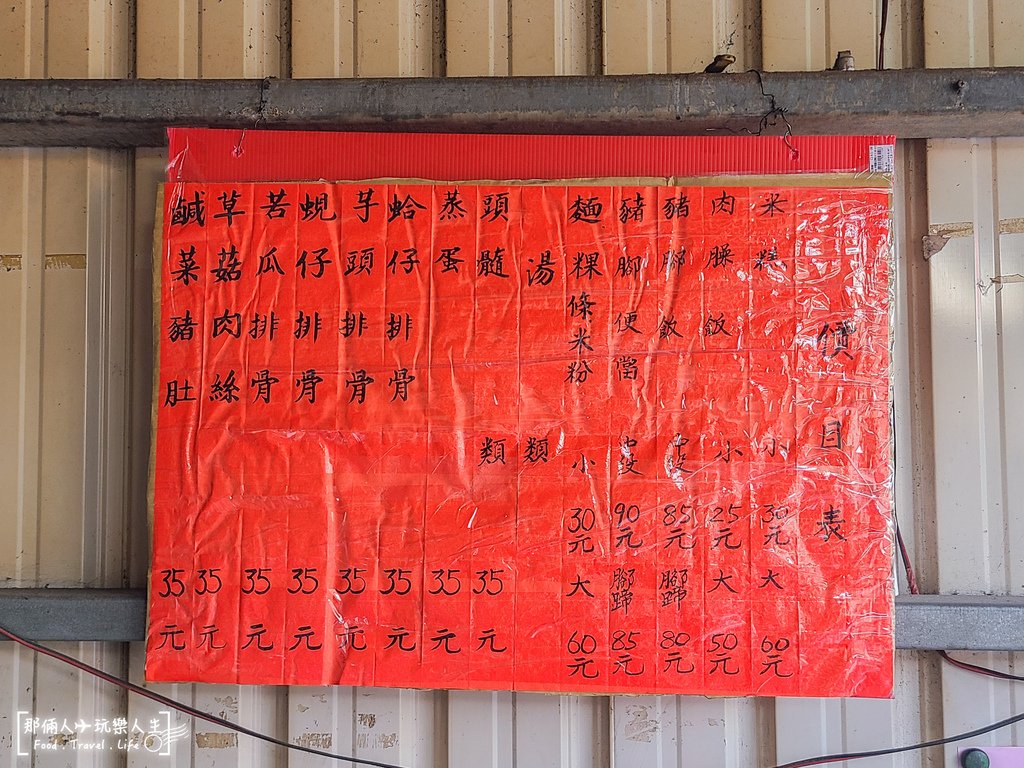 價目表
米糕 小 30元 大 60元
肉臊飯 小 25元 大 50元
豬腳飯 中段 85元 腳蹄 80元
豬腳便當 中段 90元 腳蹄 85元
麵粿條米粉 小 30元 大 60元
湯類
頭髓類 35元
蒸蛋 35元
蛤仔排骨 35元
芋頭排骨 35元
蜆仔排骨 35元
苦瓜排骨 35元
草菇肉絲 35元
鹹菜豬肚 35元
那倆人玩樂人生
Food . Travel . Life